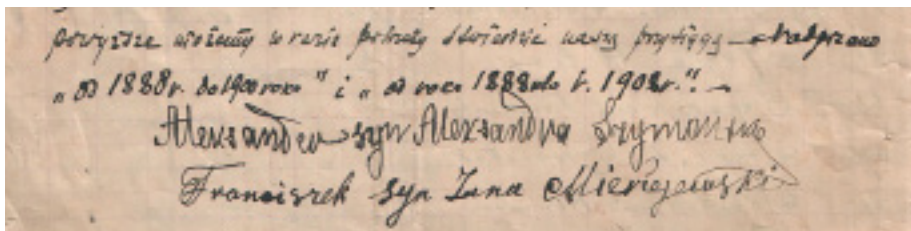 powyższe możemy w razie potrzeby stwierdzić naszą przysięgą – Nadpisano
„od 1888r. do 1900 roku" i „od roku 1888 do r. 1908r.". –
Aleksander syn Aleksandra Szymański
Franciszek syn Jana Mierzejewski